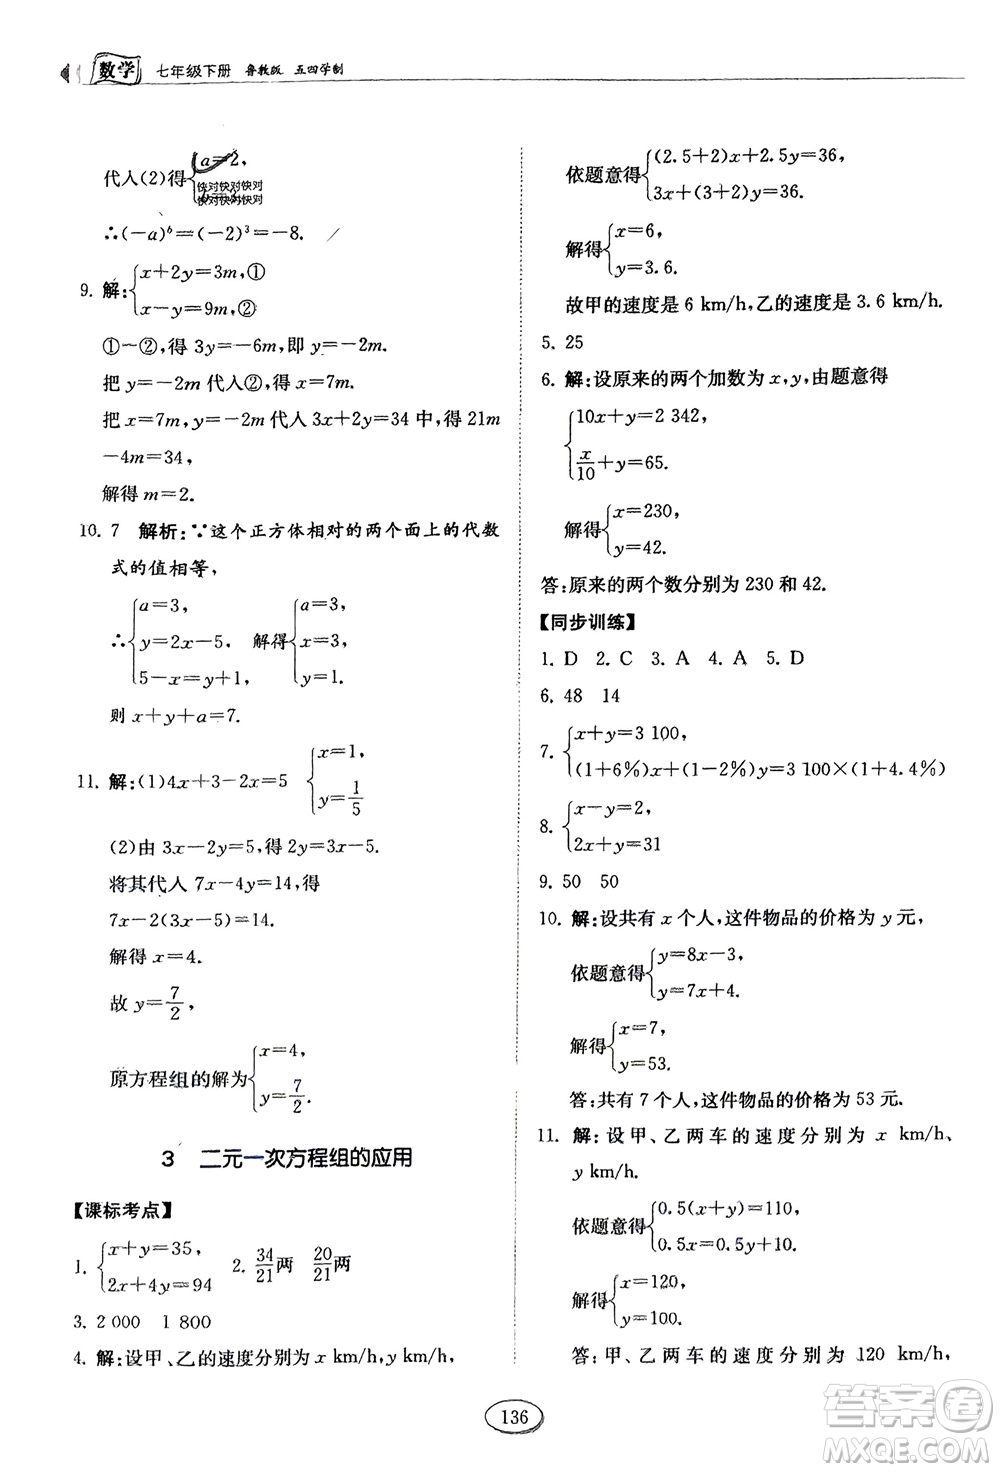 数学 七年级下册 鲁教版 五四学制
代入(2)得{a=2,
快对快对快对
快对快对快对
∴(-a)⁶=(-2)³=-8.
9. 解:{x+2y=3m,①
x-y=9m,②
①-②,得 3y=-6m,即 y=-2m.
把 y=-2m 代入②,得 x=7m.
把 x=7m,y=-2m 代入 3x+2y=34 中,得 21m
-4m=34,
解得 m=2.
10. 7 解析:∵这个正方体相对的两个面上的代数
式的值相等,
∴{a=3, y=2x-5, 5-x=y+1, 解得{a=3, x=3, y=1.
则 x+y+a=7.
11. 解:(1)4x+3-2x=5 {x=1, y=1/5
(2)由 3x-2y=5,得 2y=3x-5.
将其代入 7x-4y=14,得
7x-2(3x-5)=14.
解得 x=4.
故 y=7/2,
原方程组的解为{x=4, y=7/2.
3 二元一次方程组的应用
【课标考点】
1. {x+y=35, 2x+4y=94 2. 34/21两 20/21两
3. 2 000 1 800
4. 解:设甲、乙的速度分别为 x km/h,y km/h,
依题意得{(2.5+2)x+2.5y=36,
3x+(3+2)y=36.
解得{x=6,
y=3.6.
故甲的速度是 6 km/h,乙的速度是 3.6 km/h.
5. 25
6. 解:设原来的两个加数为 x,y,由题意得
{10x+y=2 342,
x/10+y=65.
解得{x=230,
y=42.
答:原来的两个数分别为 230 和 42.
【同步训练】
1. D 2. C 3. A 4. A 5. D
6. 48 14
7. {x+y=3 100,
(1+6%)x+(1-2%)y=3 100×(1+4.4%)
8. {x-y=2,
2x+y=31
9. 50 50
10. 解:设共有 x 个人,这件物品的价格为 y 元,
依题意得{y=8x-3,
y=7x+4.
解得{x=7,
y=53.
答:共有 7 个人,这件物品的价格为 53 元.
11. 解:设甲、乙两车的速度分别为 x km/h、
y km/h.
依题意得{0.5(x+y)=110,
0.5x=0.5y+10.
解得{x=120,
y=100.
答:甲、乙两车的速度分别为 120 km/h、
136
答案圈
MXQE.COM